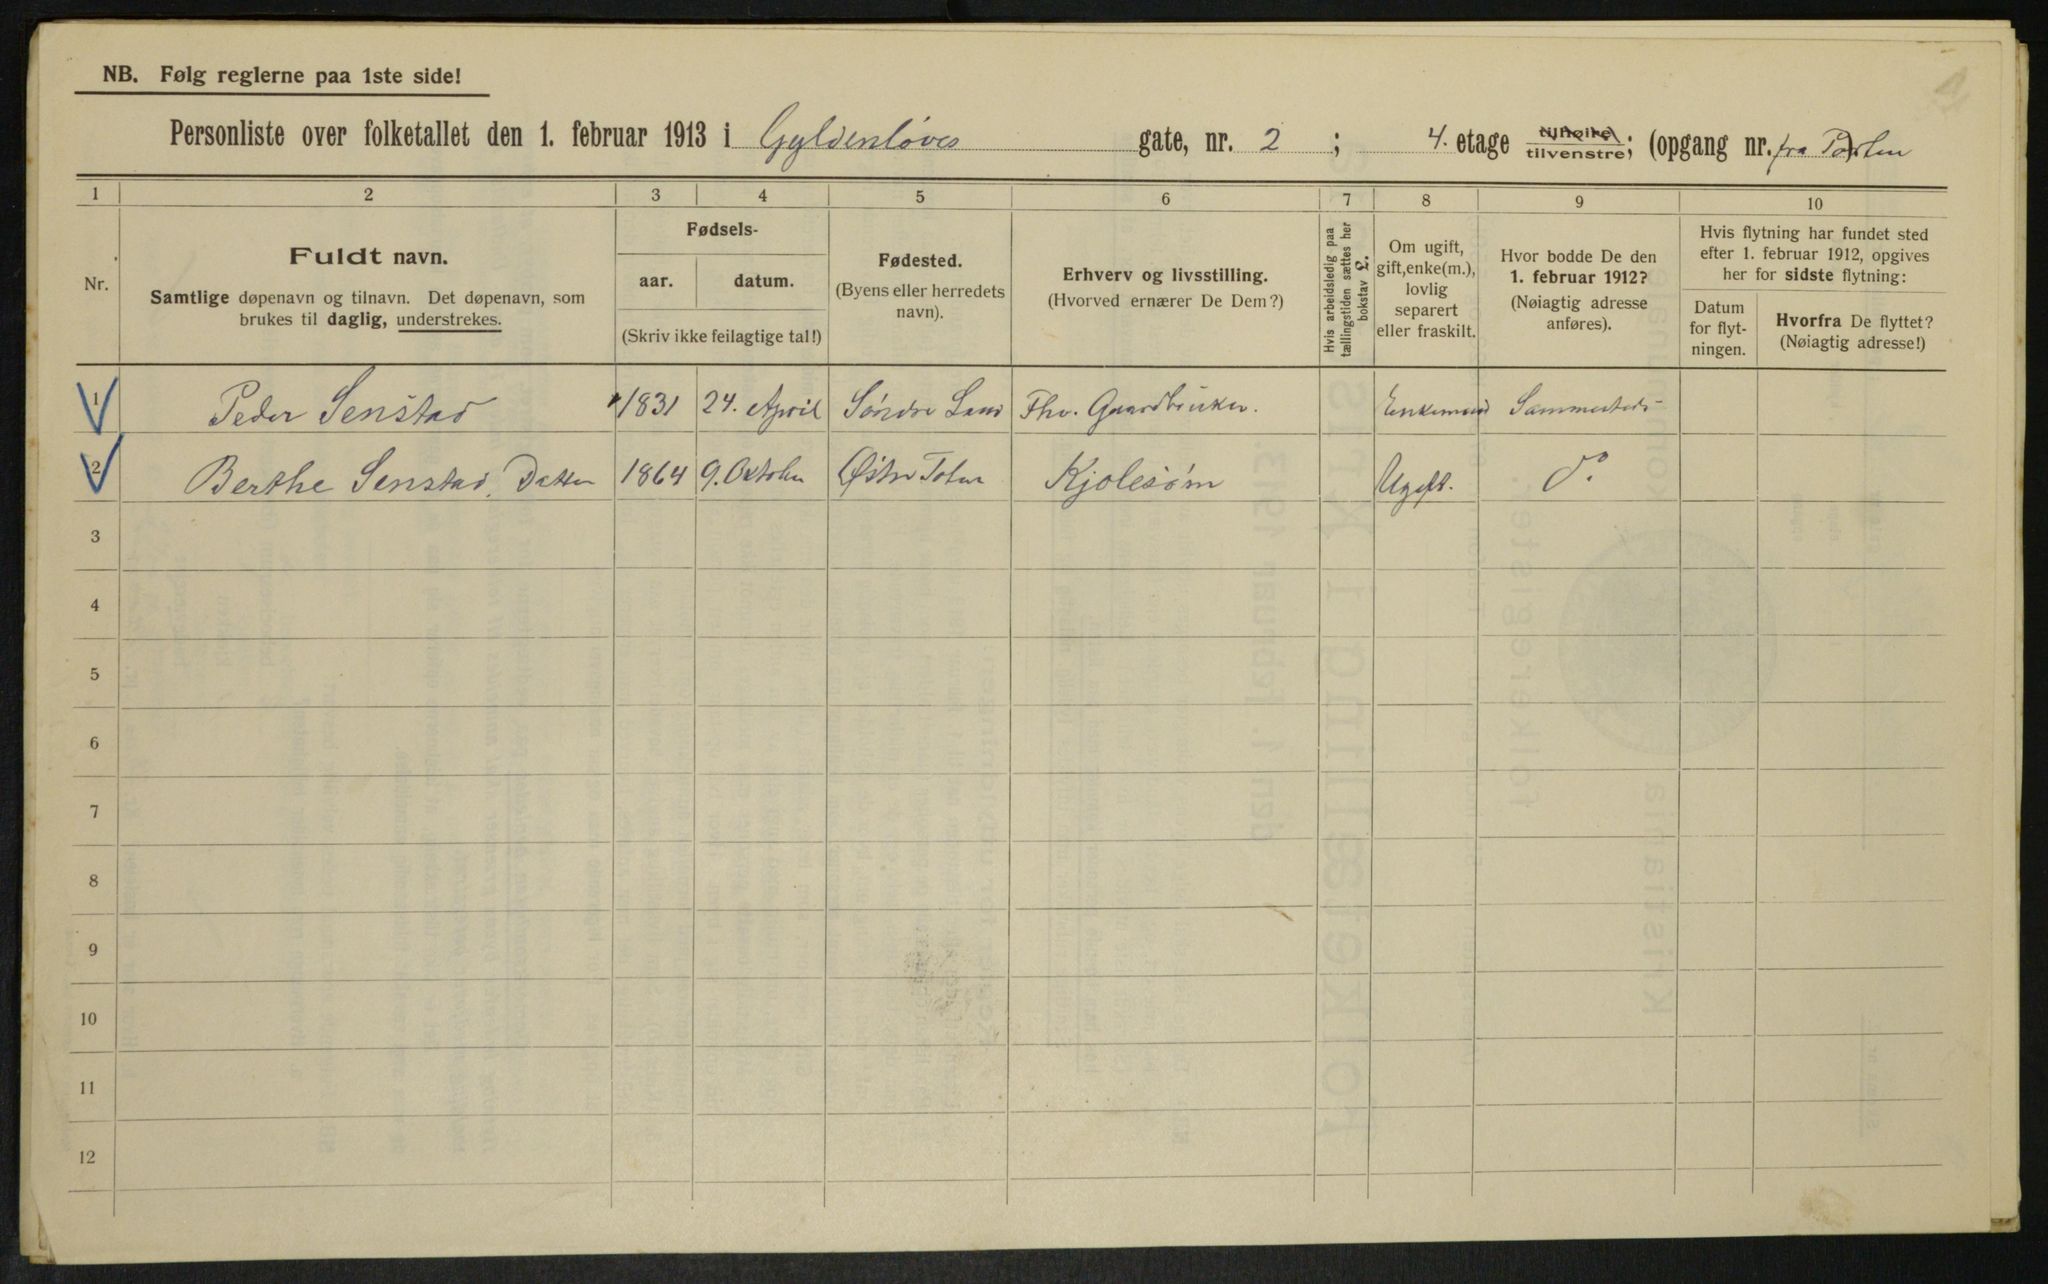 NB. Følg reglerne paa 1ste side!
Personliste over folketallet den 1. februar 1913 i Gyldenløves gate, nr. 2 ; 4. etage tilhøire / tilvenstre; (opgang nr. fra Porten )
1 2 3 4 5 6 7 8 9 10
Nr.
Fuldt navn.
Samtlige døpenavn og tilnavn. Det døpenavn, som
brukes til daglig, understrekes.
Fødsels-
aar. datum.
(Skriv ikke feilagtige tal!)
Fødested.
(Byens eller herredets
navn).
Erhverv og livsstilling.
(Hvorved ernærer De Dem?)
Hvis arbeidsledig paa
tællingstiden sættes her
bokstav L.
Om ugift,
gift, enke(m.),
lovlig
separert
eller fraskilt.
Hvor bodde De den
1. februar 1912?
(Nøiagtig adresse
anføres).
Hvis flytning har fundet sted
efter 1. februar 1912, opgives
her for sidste flytning:
Datum
for flyt-
ningen.
Hvorfra De flyttet?
(Nøiagtig adresse!)
1 Peder Senstad 1831 24. April Søndre Land Fhv. Gaardbruker. Enkemand Sammesteds
2 Berthe Senstad, Datter 1864 9. Oktober Østre Toten Kjolesøm Ugift. Do
3
4
5
6
7
8
9
10
11
12